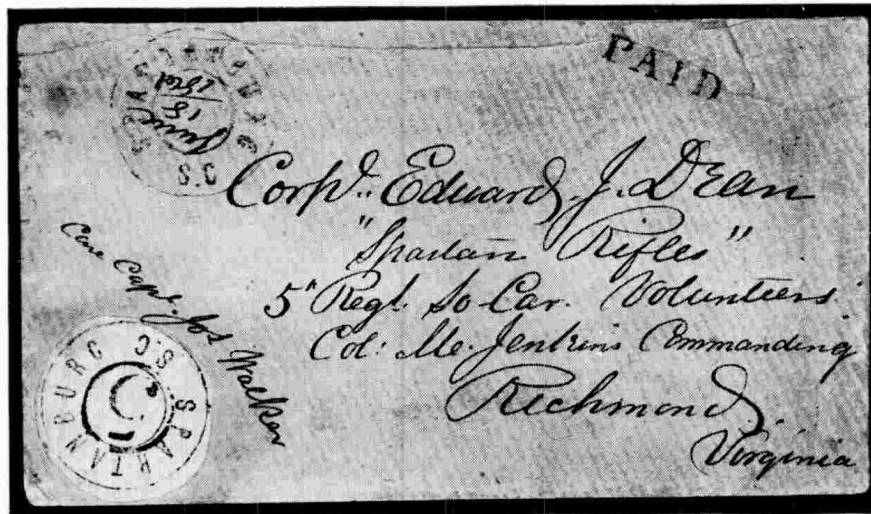 PAID
SPARTANBURG S.C.
June
18
Corpl. Edward. J. Dean
"Spartan Rifles"
5" Regt. So Car. Volunteers
Col: Jenkins Commanding
Richmond,
Virginia
Care Capt. Jos Walker
SPARTANBURG S.C.